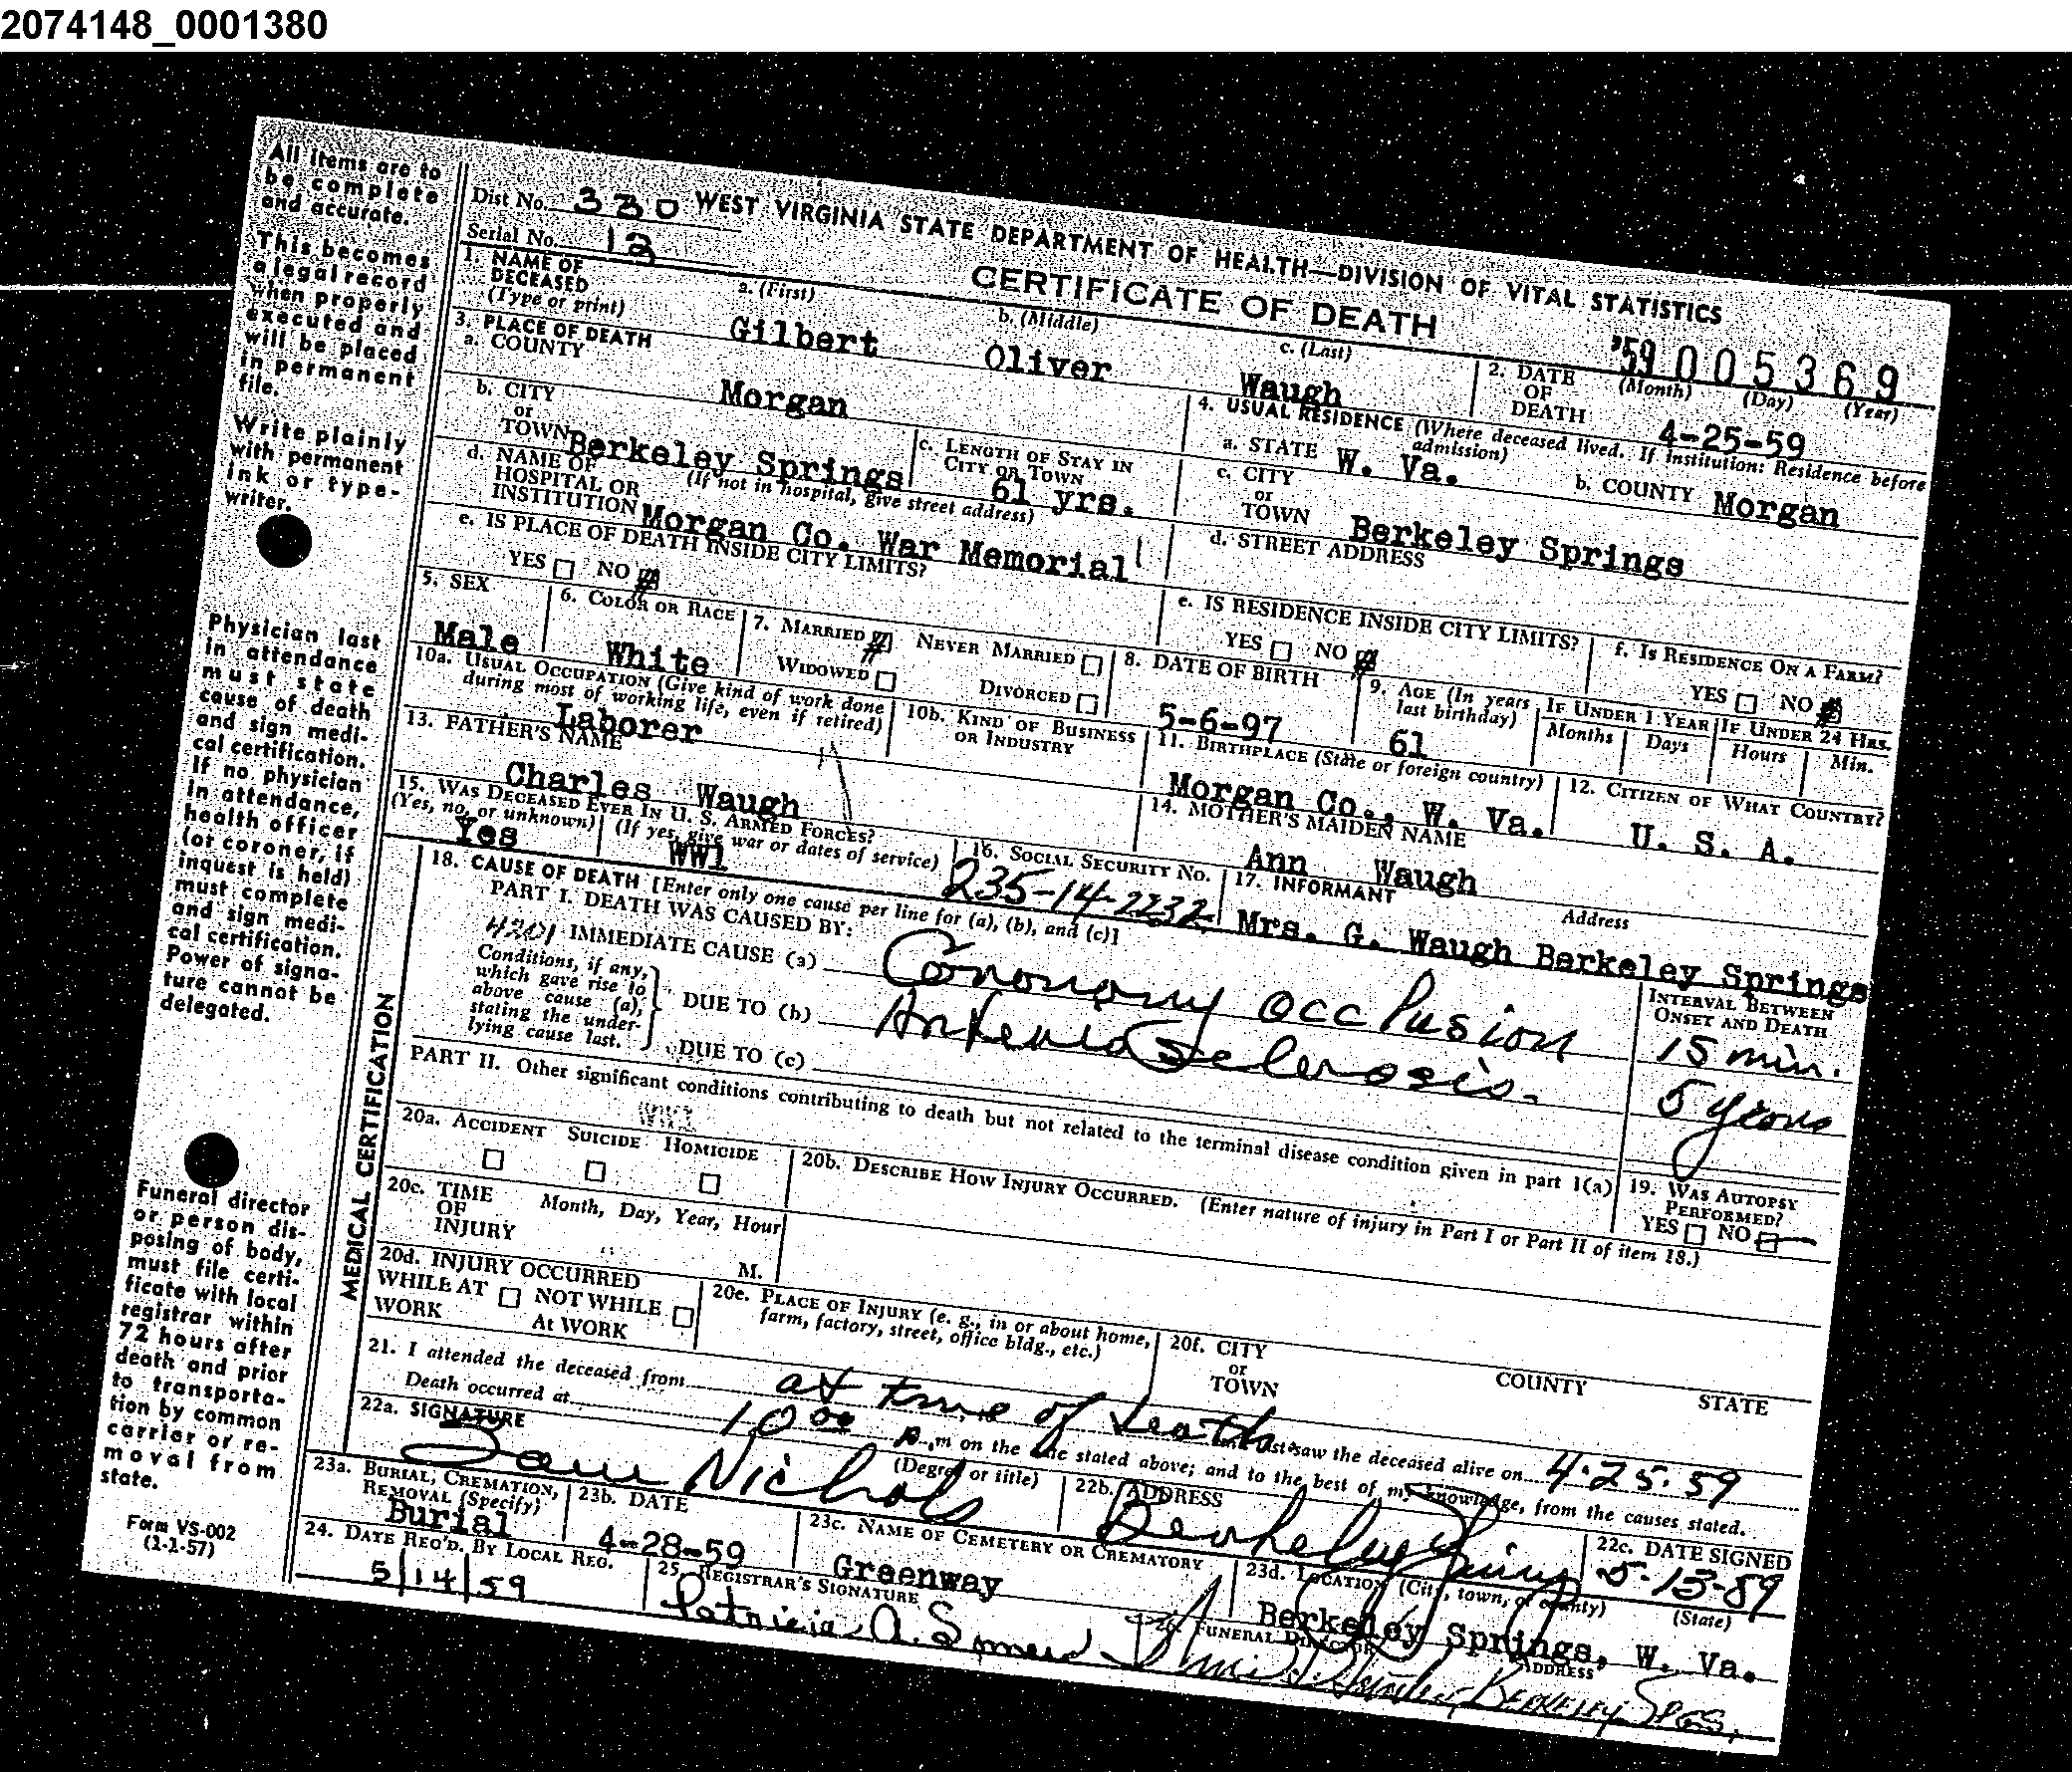 2074148_0001380
All items are to
be complete
and accurate.
This becomes
a legal record
when properly
executed and
will be placed
in permanent
file.
Write plainly
with permanent
ink or type-
writer.
Physician last
in attendance
must state
cause of death
and sign medi-
cal certification.
If no physician
in attendance,
health officer
(or coroner, if
inquest is held)
must complete
and sign medi-
cal certification.
Power of signa-
ture cannot be
delegated.
Funeral director
or person dis-
posing of body,
must file certi-
ficate with local
registrar within
72 hours after
death and prior
to transporta-
tion by common
carrier or re-
moval from
state.
Form VS-002
(1-1-57)
Dist No. 330 WEST VIRGINIA STATE DEPARTMENT OF HEALTH—DIVISION OF VITAL STATISTICS
Serial No. 12
CERTIFICATE OF DEATH
'59 005369
1. NAME OF DECEASED (Type or print)
a. (First) Gilbert
b. (Middle) Oliver
c. (Last) Waugh
2. DATE OF DEATH (Month) (Day) (Year)
4-25-59
3. PLACE OF DEATH
a. COUNTY Morgan
b. CITY or TOWN Berkeley Springs
c. LENGTH OF STAY IN CITY OR TOWN 61 yrs.
d. NAME OF HOSPITAL OR INSTITUTION (If not in hospital, give street address)
Morgan Co. War Memorial
e. IS PLACE OF DEATH INSIDE CITY LIMITS?
YES NO
4. USUAL RESIDENCE (Where deceased lived. If institution: Residence before admission)
a. STATE W. Va.
b. COUNTY Morgan
c. CITY or TOWN Berkeley Springs
d. STREET ADDRESS
e. IS RESIDENCE INSIDE CITY LIMITS?
YES NO
f. IS RESIDENCE ON A FARM?
YES NO
5. SEX Male
6. COLOR OR RACE White
7. MARRIED NEVER MARRIED
WIDOWED DIVORCED
8. DATE OF BIRTH 5-6-97
9. AGE (In years last birthday) 61
IF UNDER 1 YEAR Months Days
IF UNDER 24 HRS. Hours Min.
10a. USUAL OCCUPATION (Give kind of work done during most of working life, even if retired)
Laborer
10b. KIND OF BUSINESS OR INDUSTRY
11. BIRTHPLACE (State or foreign country)
Morgan Co., W. Va.
12. CITIZEN OF WHAT COUNTRY?
U. S. A.
13. FATHER'S NAME
Charles Waugh
14. MOTHER'S MAIDEN NAME
Ann Waugh
15. WAS DECEASED EVER IN U. S. ARMED FORCES?
(Yes, no, or unknown) (If yes, give war or dates of service)
Yes WW1
16. SOCIAL SECURITY No.
235-14-2232
17. INFORMANT Address
Mrs. G. Waugh Berkeley Springs
MEDICAL CERTIFICATION
18. CAUSE OF DEATH [Enter only one cause per line for (a), (b), and (c)]
PART I. DEATH WAS CAUSED BY:
4201 IMMEDIATE CAUSE (a) Coronary occlusion
INTERVAL BETWEEN ONSET AND DEATH
15 min.
Conditions, if any, which gave rise to above cause (a), stating the under-lying cause last.
DUE TO (b) Arterio Sclerosis.
5 years
DUE TO (c)
PART II. Other significant conditions contributing to death but not related to the terminal disease condition given in part I(a)
19. WAS AUTOPSY PERFORMED?
YES NO
20a. ACCIDENT SUICIDE HOMICIDE
20b. DESCRIBE HOW INJURY OCCURRED. (Enter nature of injury in Part I or Part II of item 18.)
20c. TIME OF INJURY Month, Day, Year, Hour
M.
20d. INJURY OCCURRED
WHILE AT WORK NOT WHILE At WORK
20e. PLACE OF INJURY (e. g., in or about home, farm, factory, street, office bldg., etc.)
20f. CITY or TOWN COUNTY STATE
21. I attended the deceased from at time of death last saw the deceased alive on 4-25-59
Death occurred at 10 00 p.m on the date stated above; and to the best of my knowledge, from the causes stated.
22a. SIGNATURE (Degree or title)
Sam Nichols
22b. ADDRESS
Berkeley Springs
22c. DATE SIGNED
5-13-59
23a. BURIAL, CREMATION, REMOVAL (Specify)
Burial
23b. DATE
4-28-59
23c. NAME OF CEMETERY OR CREMATORY
Greenway
23d. LOCATION (City, town, or county) (State)
Berkeley Springs, W. Va.
24. DATE REC'D. BY LOCAL REG.
5/14/59
25. REGISTRAR'S SIGNATURE
Patricia A.
26. FUNERAL DIRECTOR ADDRESS
Berkeley Spgs.